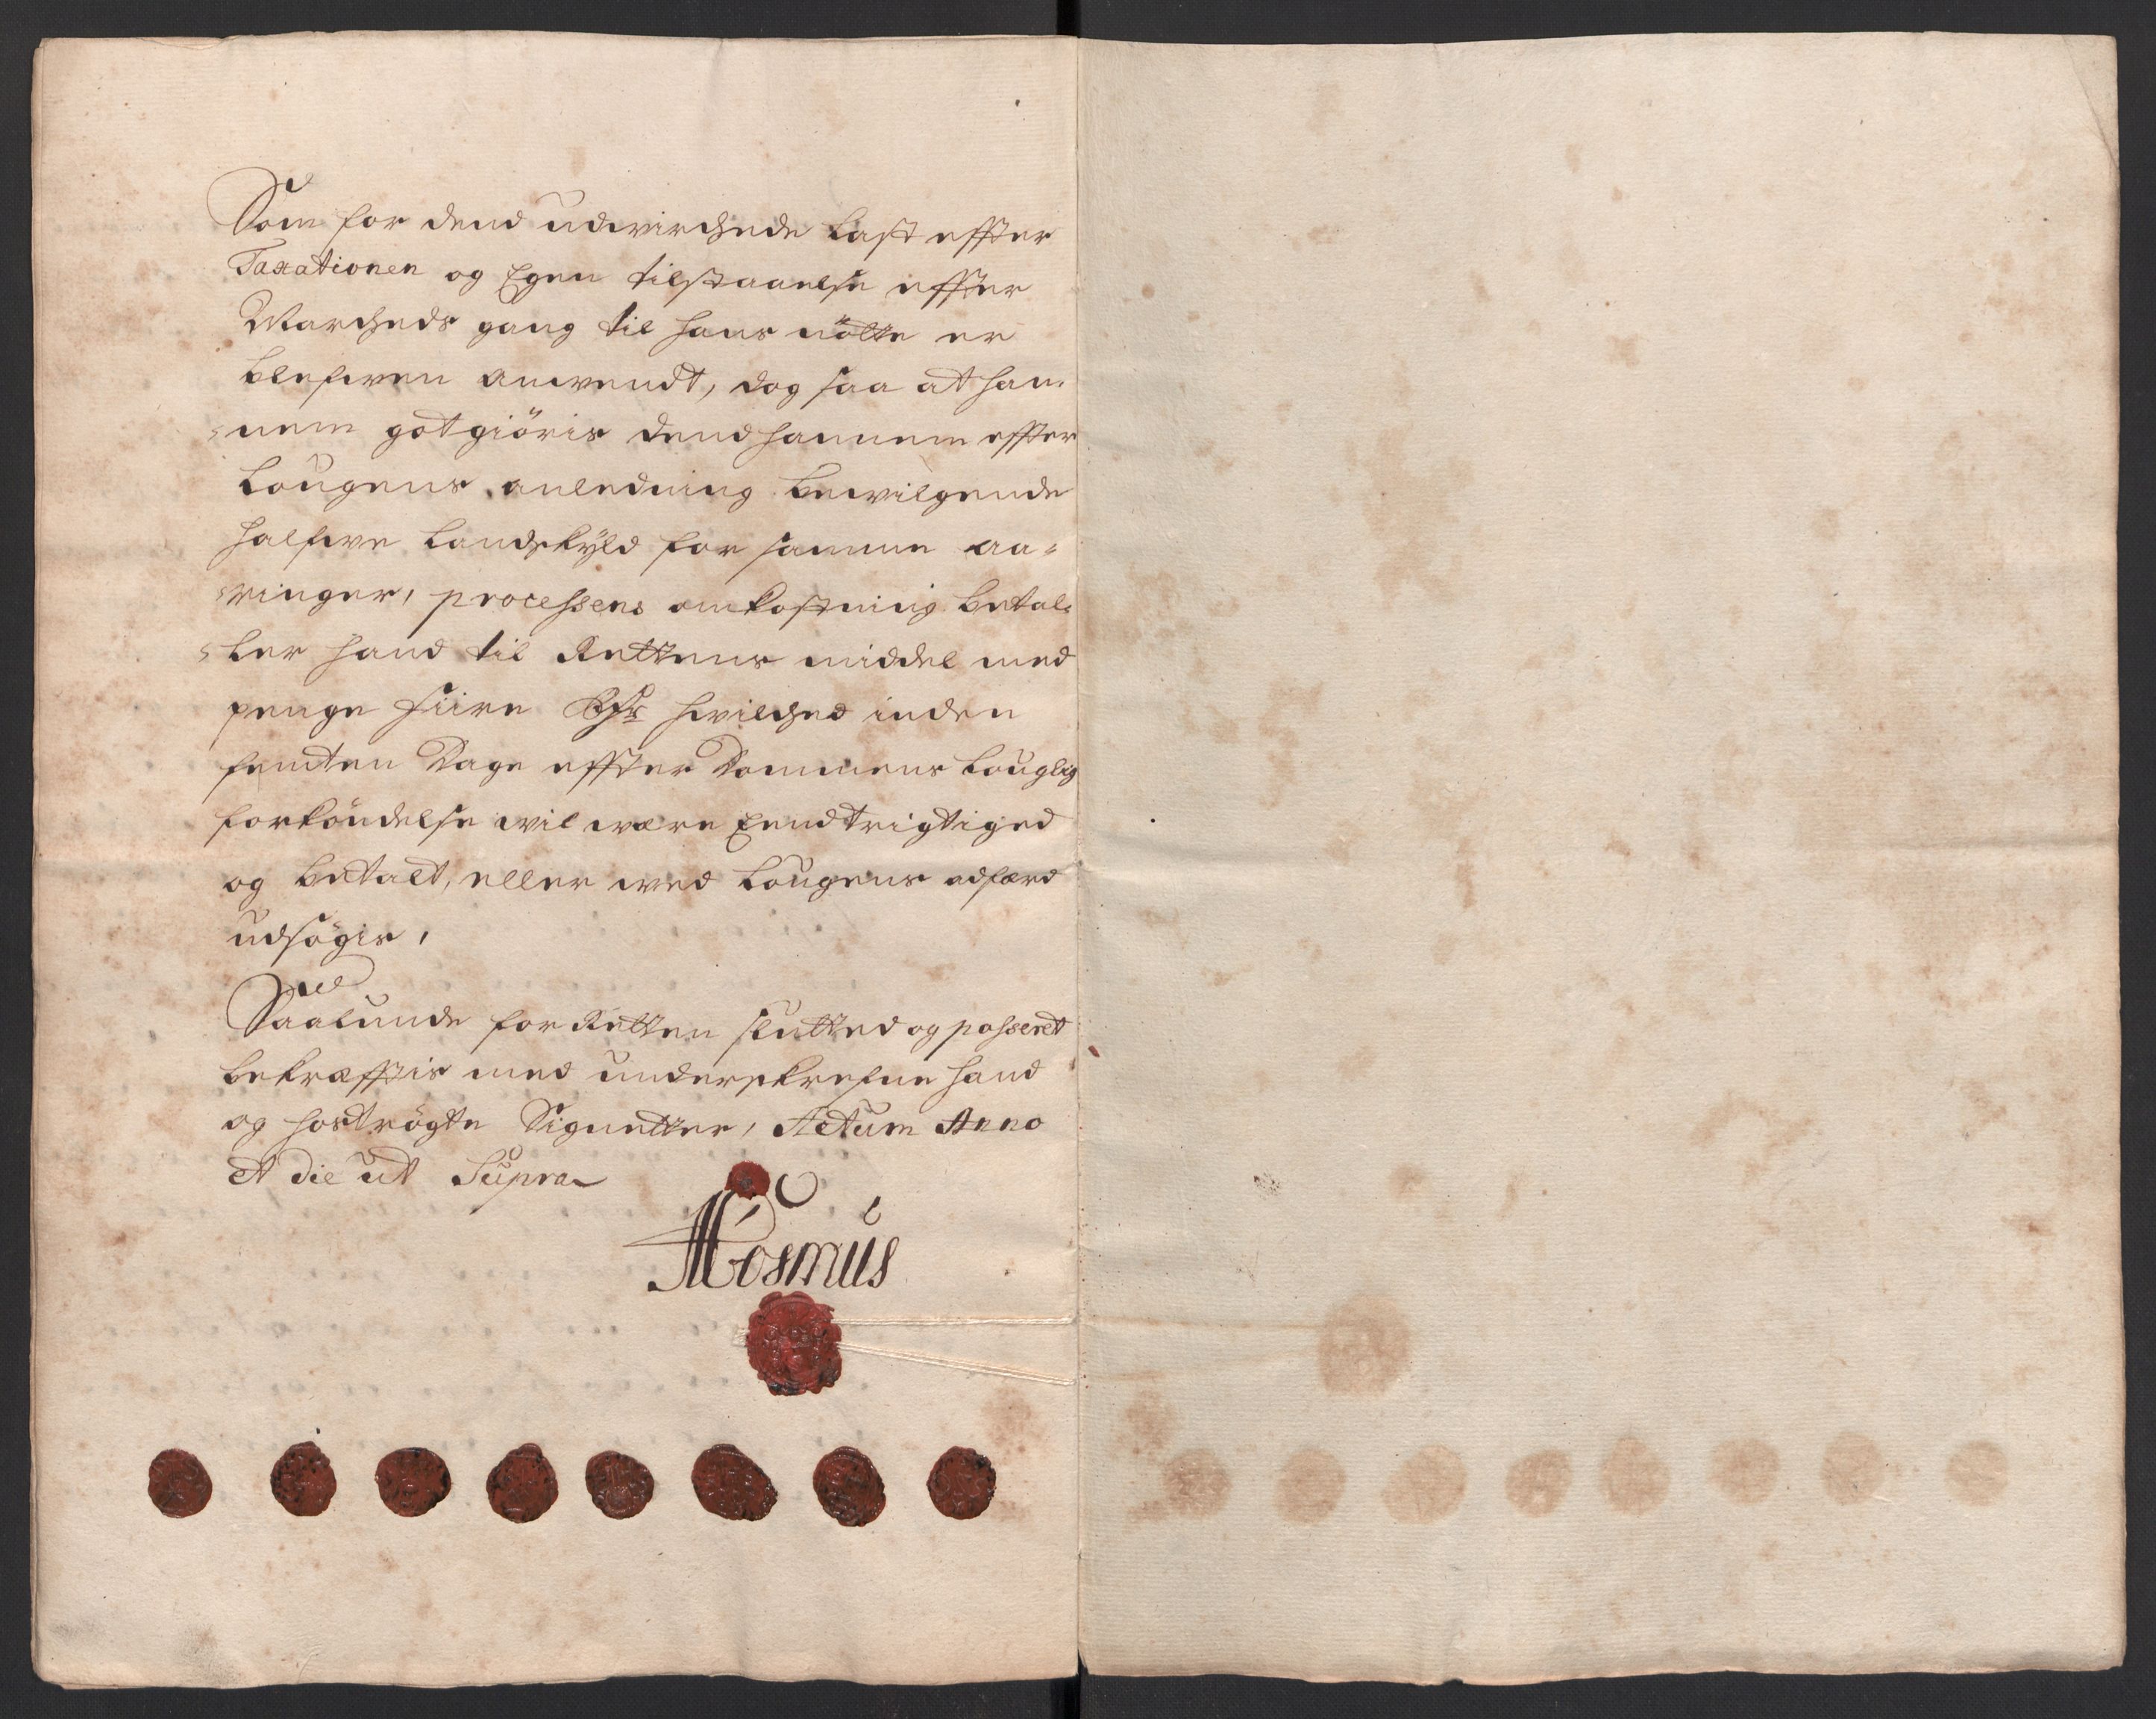 Som for dend udwirchede last effter
Taxationen og Egen tilstaaelse effter
Marcheds gang til hans nötte er
blefwen anwendt, dog saa at han-
nem got giöris dend hannem effter
Lougens anledning bewilgende
halfwe Landskÿld for samme aa-
ringer, processens omkostning betal-
ler hand til Rettens middel med
penge fiire Rdr hvilched inden
femten Dage effter Dommens louglig
forköndelse wil være Eendtrigtiged
og betalt, eller wed Lougens adfærd
udsögis,
Saalunde for Retten slutted og passeret
bekræfftis med underskrefne haand
og hoströgte Signetter, Actum Anno
et die ut Supra